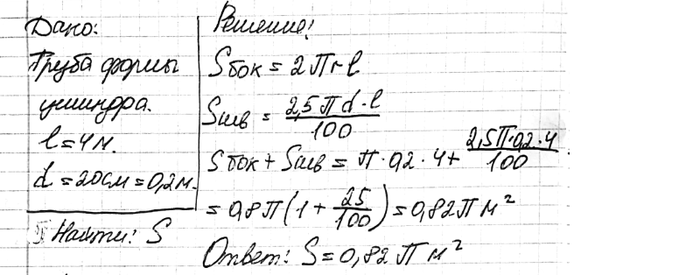 Дано:
Труба формы
цилиндра.
l = 4 м.
d = 20 см = 0,2 м.
Найти: S
Решение:
Sбок = 2πrl
Sшв = 2,5πd·l / 100
Sбок + Sшв = π·0,2·4 + 2,5π·0,2·4 / 100
= 0,8π(1 + 25/100) = 0,82π м²
Ответ: S = 0,82 π м²